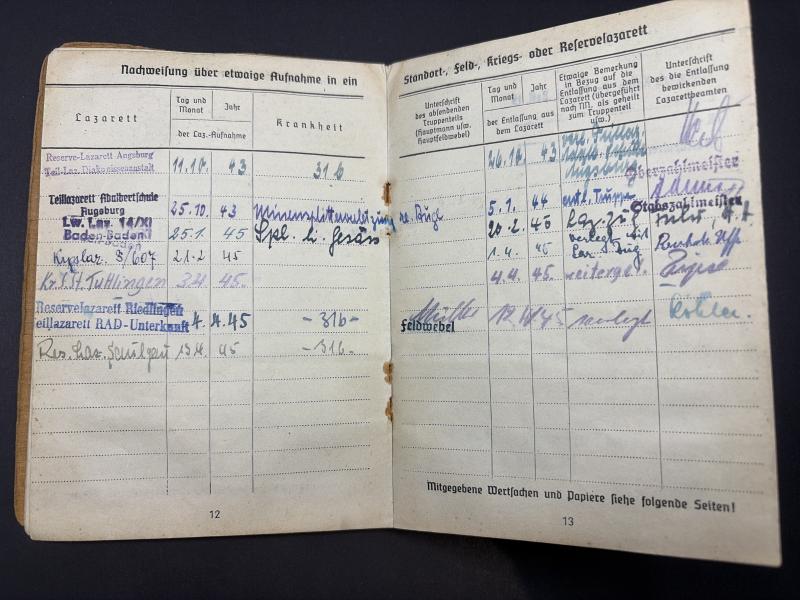 Nachweisung über etwaige Aufnahme in ein
Lazarett
Tag und Monat
Jahr
der Laz.-Aufnahme
Krankheit
Reserve-Lazarett Augsburg
Teil-Laz. Diakonissenanstalt
11.10. 43 31 b
Teillazarett Adalbertschule
Augsburg
25.10. 43 Minensplitterverletzung re. Bügl
Lw. Laz. 14/XI
Baden-Baden
25.1. 45 Spl. l. Gesäss
21.2 45
Tuttlingen 3.4. 45.
Reservelazarett Riedlingen
Teillazarett RAD-Unterkunft 4.4.45 -31b-
Res. Laz. 13.4. 45 -31b-
12
Standort-, Feld-, Kriegs- oder Reservelazarett
Unterschrift
des absendenden
Truppenteils
(Hauptmann usw.
Hauptfeldwebel)
Tag und
Monat
Jahr
der Entlassung aus
dem Lazarett
Etwaige Bemerkung
in Bezug auf die
Entlassung aus dem
Lazarett (übergeführt
nach NN. als geheilt
zum Truppenteil
usw.)
Unterschrift
des die Entlassung
bewirkenden
Lazarettbeamten
26.10. 43
Augsburg
Oberzahlmeister
5.1. 44 entl. Truppe
Stabszahlmeister
20.2. 45 Laz. Zug
1.4. 45 verlegt mit
Laz. Zug
4.4. 45.
Müller
Feldwebel
12.4.45 verlegt
Mitgegebene Wertsachen und Papiere siehe folgende Seiten!
13